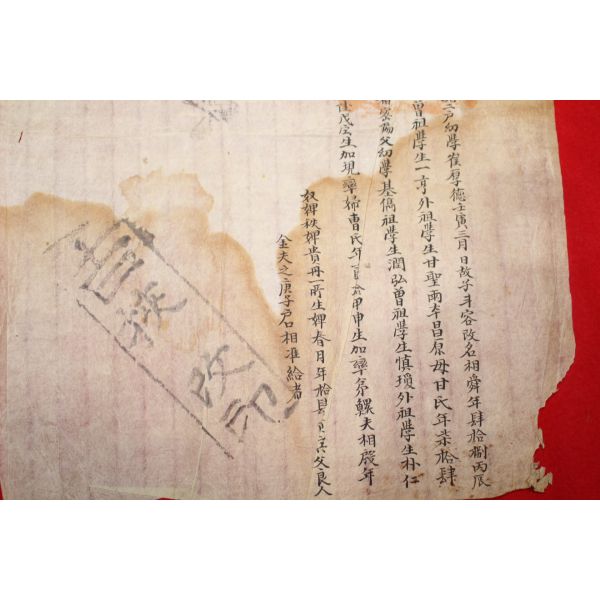 二戶幼學崔厚德壬寅三月日故子斗容改名相舜年肆拾捌丙辰
曾祖學生一亨外祖學生甘聖雨本昌原母甘氏年柒拾肆
父幼學基僑祖學生潤弘曾祖學生慎瓊外祖學生朴仁
戊辰生加現率婦曹氏年 甲申生加率弟 夫相殷年
奴婢秩婢貴丹一所生婢春月年拾 父良人
金夫之庚子戶口相准給者
改印